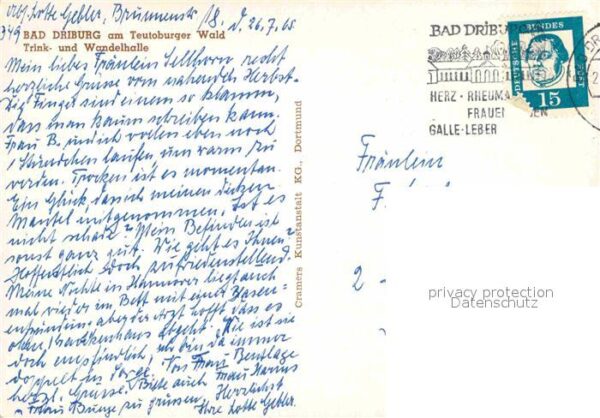 Abs. Lotte Gebler, Brunnenstr. 18. d. 26.7.65
349 BAD DRIBURG am Teutoburger Wald
Trink- und Wandelhalle
Mein liebes Fräulein Sellhorn, recht
herzliche Grüsse vom nahenden Herbst.
Die Finger sind einem so klamm,
dass man kaum schreiben kann.
Frau B. und ich wollen eben noch
1 Stündchen laufen, um warm zu
werden. Trocken ist es momentan.
Ein Glück, dass ich meinen dicken
Mantel mitgenommen. Ist es
nicht schade? Mein Befinden ist
sonst ganz gut. Wie geht es Ihnen?
Hoffentlich doch zufriedenstellend.
Meine Nichte in Hannover liegt auch
mal wieder im Bett mit einer Blasen-
entzündung, aber der Arzt hofft dass es
ohne Krankenhaus abgeht. Wie ist sie
doch empfindlich, ich bin da immer
doppelt in Sorge. Von Frau Bentlage
herzl. Grüsse. Bitte auch Frau
Frau Bunge zu grüssen. Herzlichst
Ihre Lotte Gebler.
Cramers Kunstanstalt KG., Dortmund
BAD DRIBURG
HERZ · RHEUMA
FRAUEN
GALLE · LEBER
DEUTSCHE BUNDESPOST
15
Fräulein
F.
2
privacy protection
Datenschutz